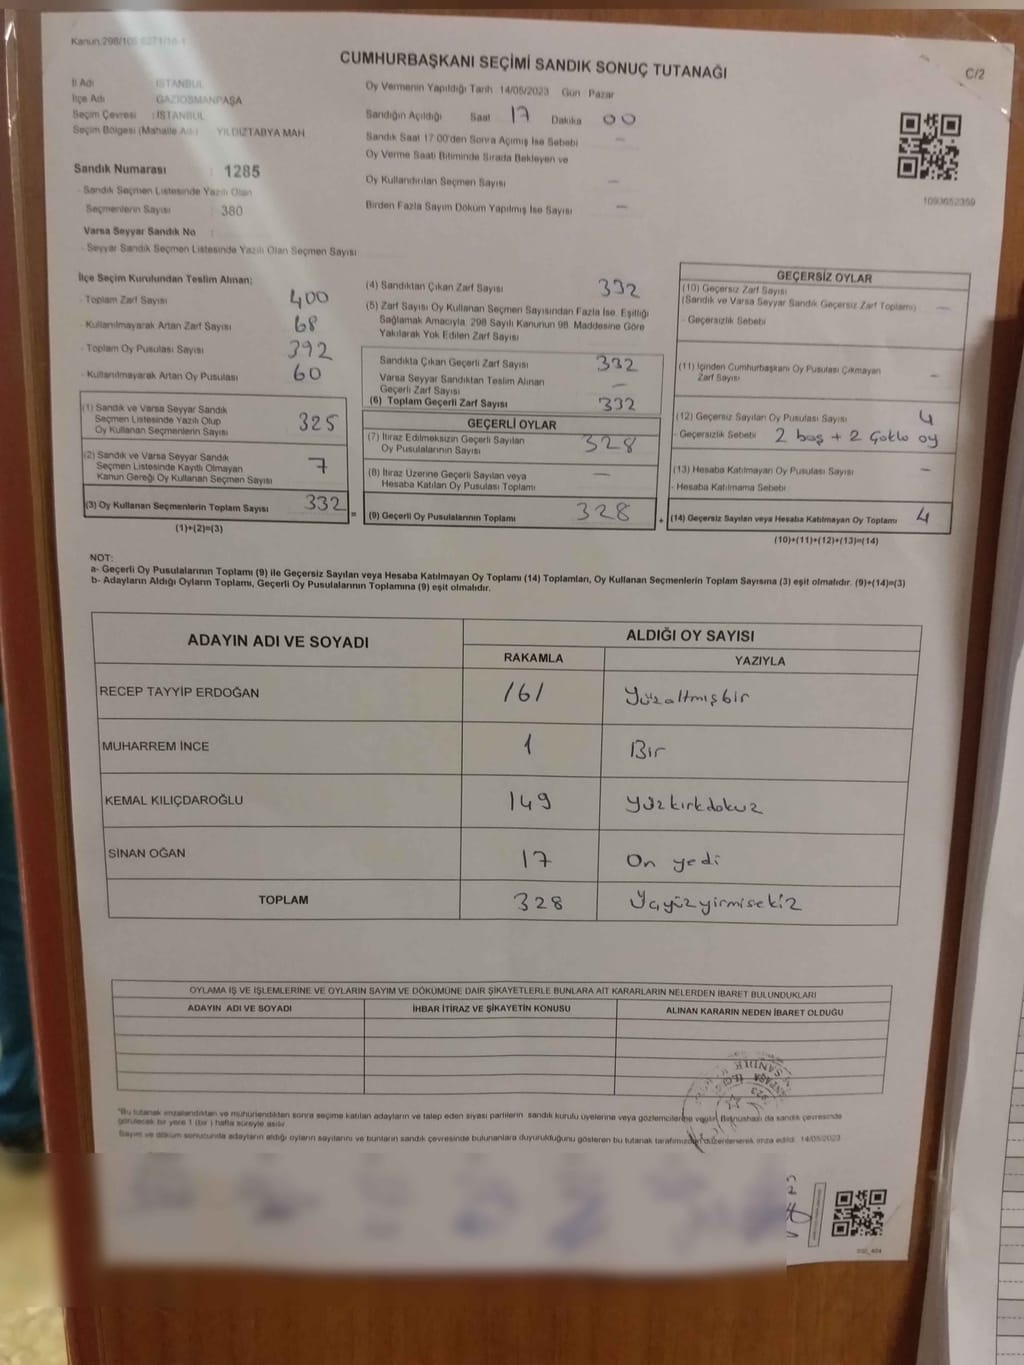 Kanun:298/105 6271/16-1
CUMHURBAŞKANI SEÇİMİ SANDIK SONUÇ TUTANAĞI
C/2
İl Adı : İSTANBUL
İlçe Adı GAZİOSMANPAŞA
Seçim Çevresi : İSTANBUL
Seçim Bölgesi (Mahalle Adı) YILDIZTABYA MAH
Oy Vermenin Yapıldığı Tarih 14/05/2023 Gün Pazar
Sandığın Açıldığı Saat 17 Dakika 00
Sandık Saat 17:00'den Sonra Açmış İse Sebebi —
Oy Verme Saati Bitiminde Sırada Bekleyen ve
Oy Kullandırılan Seçmen Sayısı —
Birden Fazla Sayım Döküm Yapılmış İse Sayısı —
1093652359
Sandık Numarası : 1285
- Sandık Seçmen Listesinde Yazılı Olan
Seçmenlerin Sayısı : 380
Varsa Seyyar Sandık No :
- Seyyar Sandık Seçmen Listesinde Yazılı Olan Seçmen Sayısı
İlçe Seçim Kurulundan Teslim Alınan;
- Toplam Zarf Sayısı 400
- Kullanılmayarak Artan Zarf Sayısı 68
- Toplam Oy Pusulası Sayısı 392
- Kullanılmayarak Artan Oy Pusulası 60
(1) Sandık ve Varsa Seyyar Sandık
Seçmen Listesinde Yazılı Olup
Oy Kullanan Seçmenlerin Sayısı 325
(2) Sandık ve Varsa Seyyar Sandık
Seçmen Listesinde Kayıtlı Olmayan
Kanun Gereği Oy Kullanan Seçmen Sayısı 7
(3) Oy Kullanan Seçmenlerin Toplam Sayısı 332
(1)+(2)=(3)
=
(4) Sandıktan Çıkan Zarf Sayısı 332
(5) Zarf Sayısı Oy Kullanan Seçmen Sayısından Fazla İse, Eşitliği
Sağlamak Amacıyla, 298 Sayılı Kanunun 98. Maddesine Göre
Yakılarak Yok Edilen Zarf Sayısı
Sandıkta Çıkan Geçerli Zarf Sayısı 332
Varsa Seyyar Sandıktan Teslim Alınan
Geçerli Zarf Sayısı —
(6) Toplam Geçerli Zarf Sayısı 332
GEÇERLİ OYLAR
(7) İtiraz Edilmeksizin Geçerli Sayılan
Oy Pusulalarının Sayısı 328
(8) İtiraz Üzerine Geçerli Sayılan veya
Hesaba Katılan Oy Pusulası Toplamı —
(9) Geçerli Oy Pusulalarının Toplamı 328
+
GEÇERSİZ OYLAR
(10) Geçersiz Zarf Sayısı
(Sandık ve Varsa Seyyar Sandık Geçersiz Zarf Toplamı) —
- Geçersizlik Sebebi
(11) İçinden Cumhurbaşkanı Oy Pusulası Çıkmayan
Zarf Sayısı —
(12) Geçersiz Sayılan Oy Pusulası Sayısı 4
- Geçersizlik Sebebi 2 boş + 2 Çoklu oy
(13) Hesaba Katılmayan Oy Pusulası Sayısı —
- Hesaba Katılmama Sebebi
(14) Geçersiz Sayılan veya Hesaba Katılmayan Oy Toplamı 4
(10)+(11)+(12)+(13)=(14)
NOT:
a- Geçerli Oy Pusulalarının Toplamı (9) ile Geçersiz Sayılan veya Hesaba Katılmayan Oy Toplamı (14) Toplamları, Oy Kullanan Seçmenlerin Toplam Sayısına (3) eşit olmalıdır. (9)+(14)=(3)
b- Adayların Aldığı Oyların Toplamı, Geçerli Oy Pusulalarının Toplamına (9) eşit olmalıdır.
ADAYIN ADI VE SOYADI ALDIĞI OY SAYISI
RAKAMLA YAZIYLA
RECEP TAYYİP ERDOĞAN 161 Yüzaltmışbir
MUHARREM İNCE 1 Bir
KEMAL KILIÇDAROĞLU 149 Yüzkırkdokuz
SİNAN OĞAN 17 On yedi
TOPLAM 328 Üçyüzyirmisekiz
OYLAMA İŞ VE İŞLEMLERİNE VE OYLARIN SAYIM VE DÖKÜMÜNE DAİR ŞİKAYETLERLE BUNLARA AİT KARARLARIN NELERDEN İBARET BULUNDUKLARI
ADAYIN ADI VE SOYADI İHBAR İTİRAZ VE ŞİKAYETİN KONUSU ALINAN KARARIN NEDEN İBARET OLDUĞU
*Bu tutanak imzalandıktan ve mühürlendikten sonra seçime katılan adayların ve talep eden siyasi partilerin sandık kurulu üyelerine veya gözlemcilerine verilir. Bir nüshası da sandık çevresinde
görülecek bir yere 1 (bir) hafta süreyle asılır
Sayım ve döküm sonucunda adayların aldığı oyların sayılarını ve bunların sandık çevresinde bulunanlara duyurulduğunu gösteren bu tutanak tarafımızdan düzenlenerek imza edildi. 14/05/2023